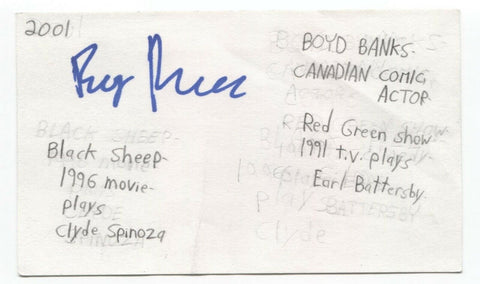 2001
BOYD BANKS-
CANADIAN COMIC
ACTOR
Red Green show
1991 t.v. plays
Earl Battersby
Black Sheep-
1996 movie-
plays
Clyde Spinoza